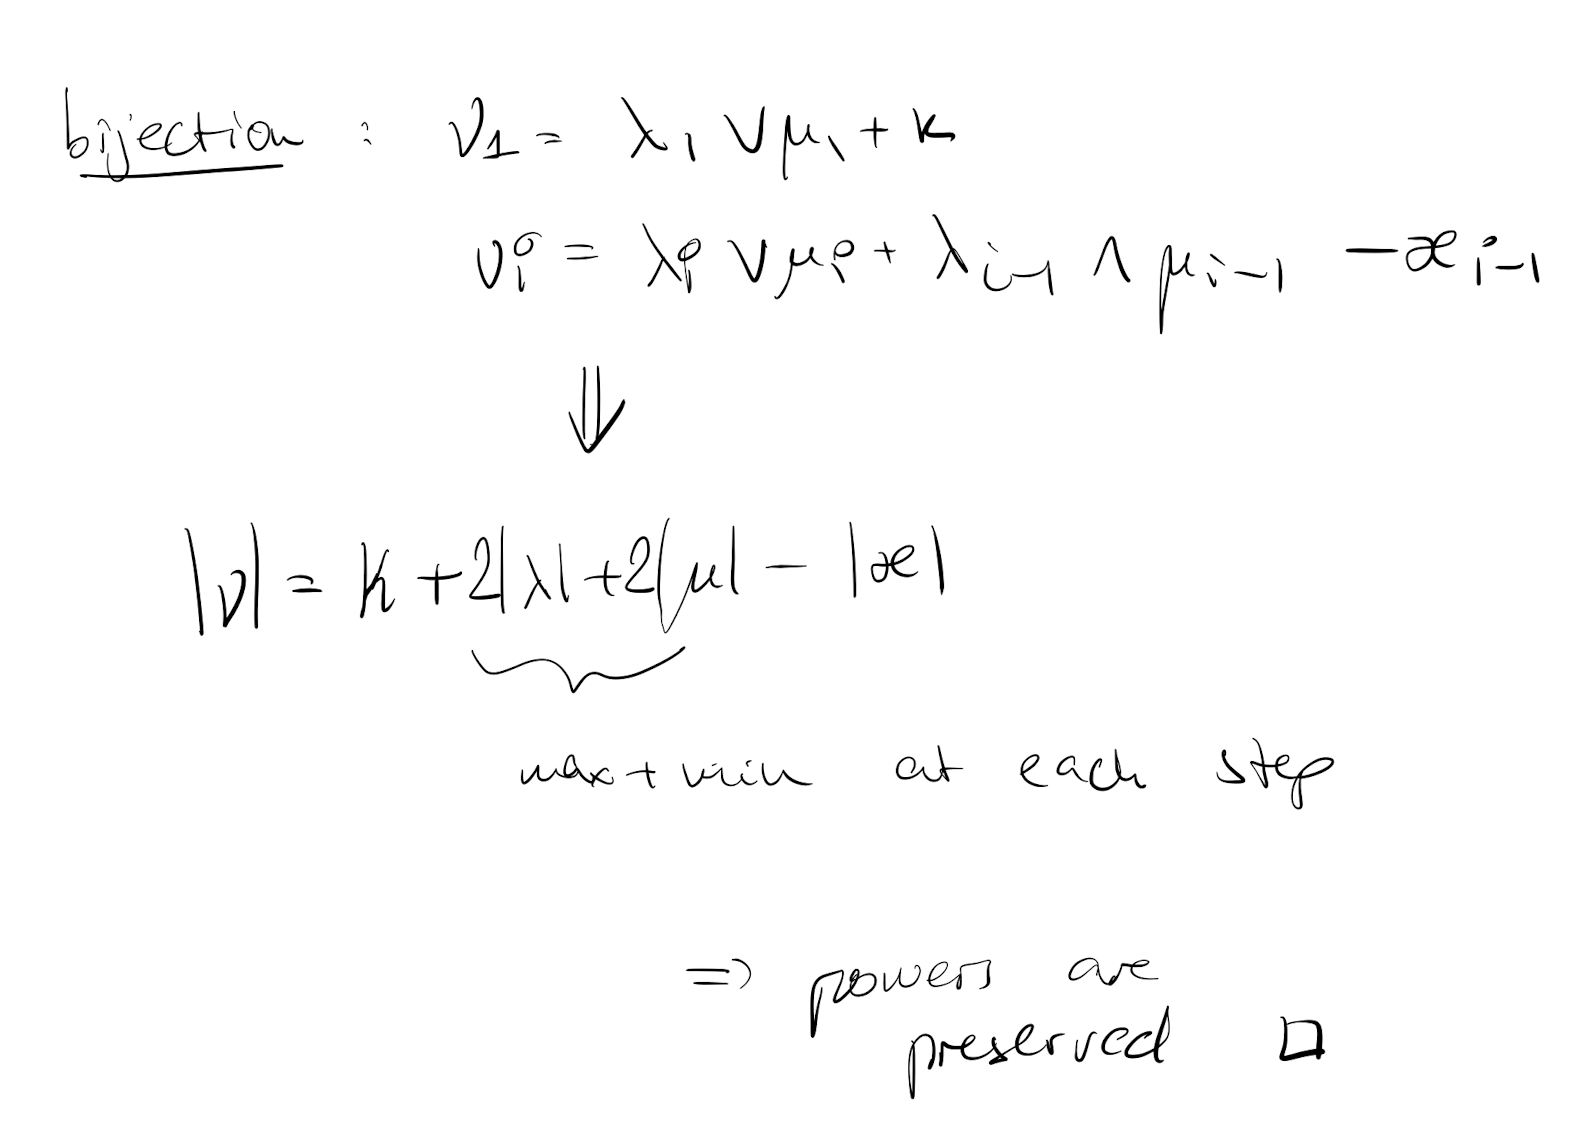 bijection : ν₁ = λ₁ ∨ μ₁ + k
νᵢ = λᵢ ∨ μᵢ + λᵢ₋₁ ∧ μᵢ₋₁ − æᵢ₋₁
⇓
|ν| = k + 2|λ| + 2|μ| − |æ|
max + min at each step
=> powers are
preserved □